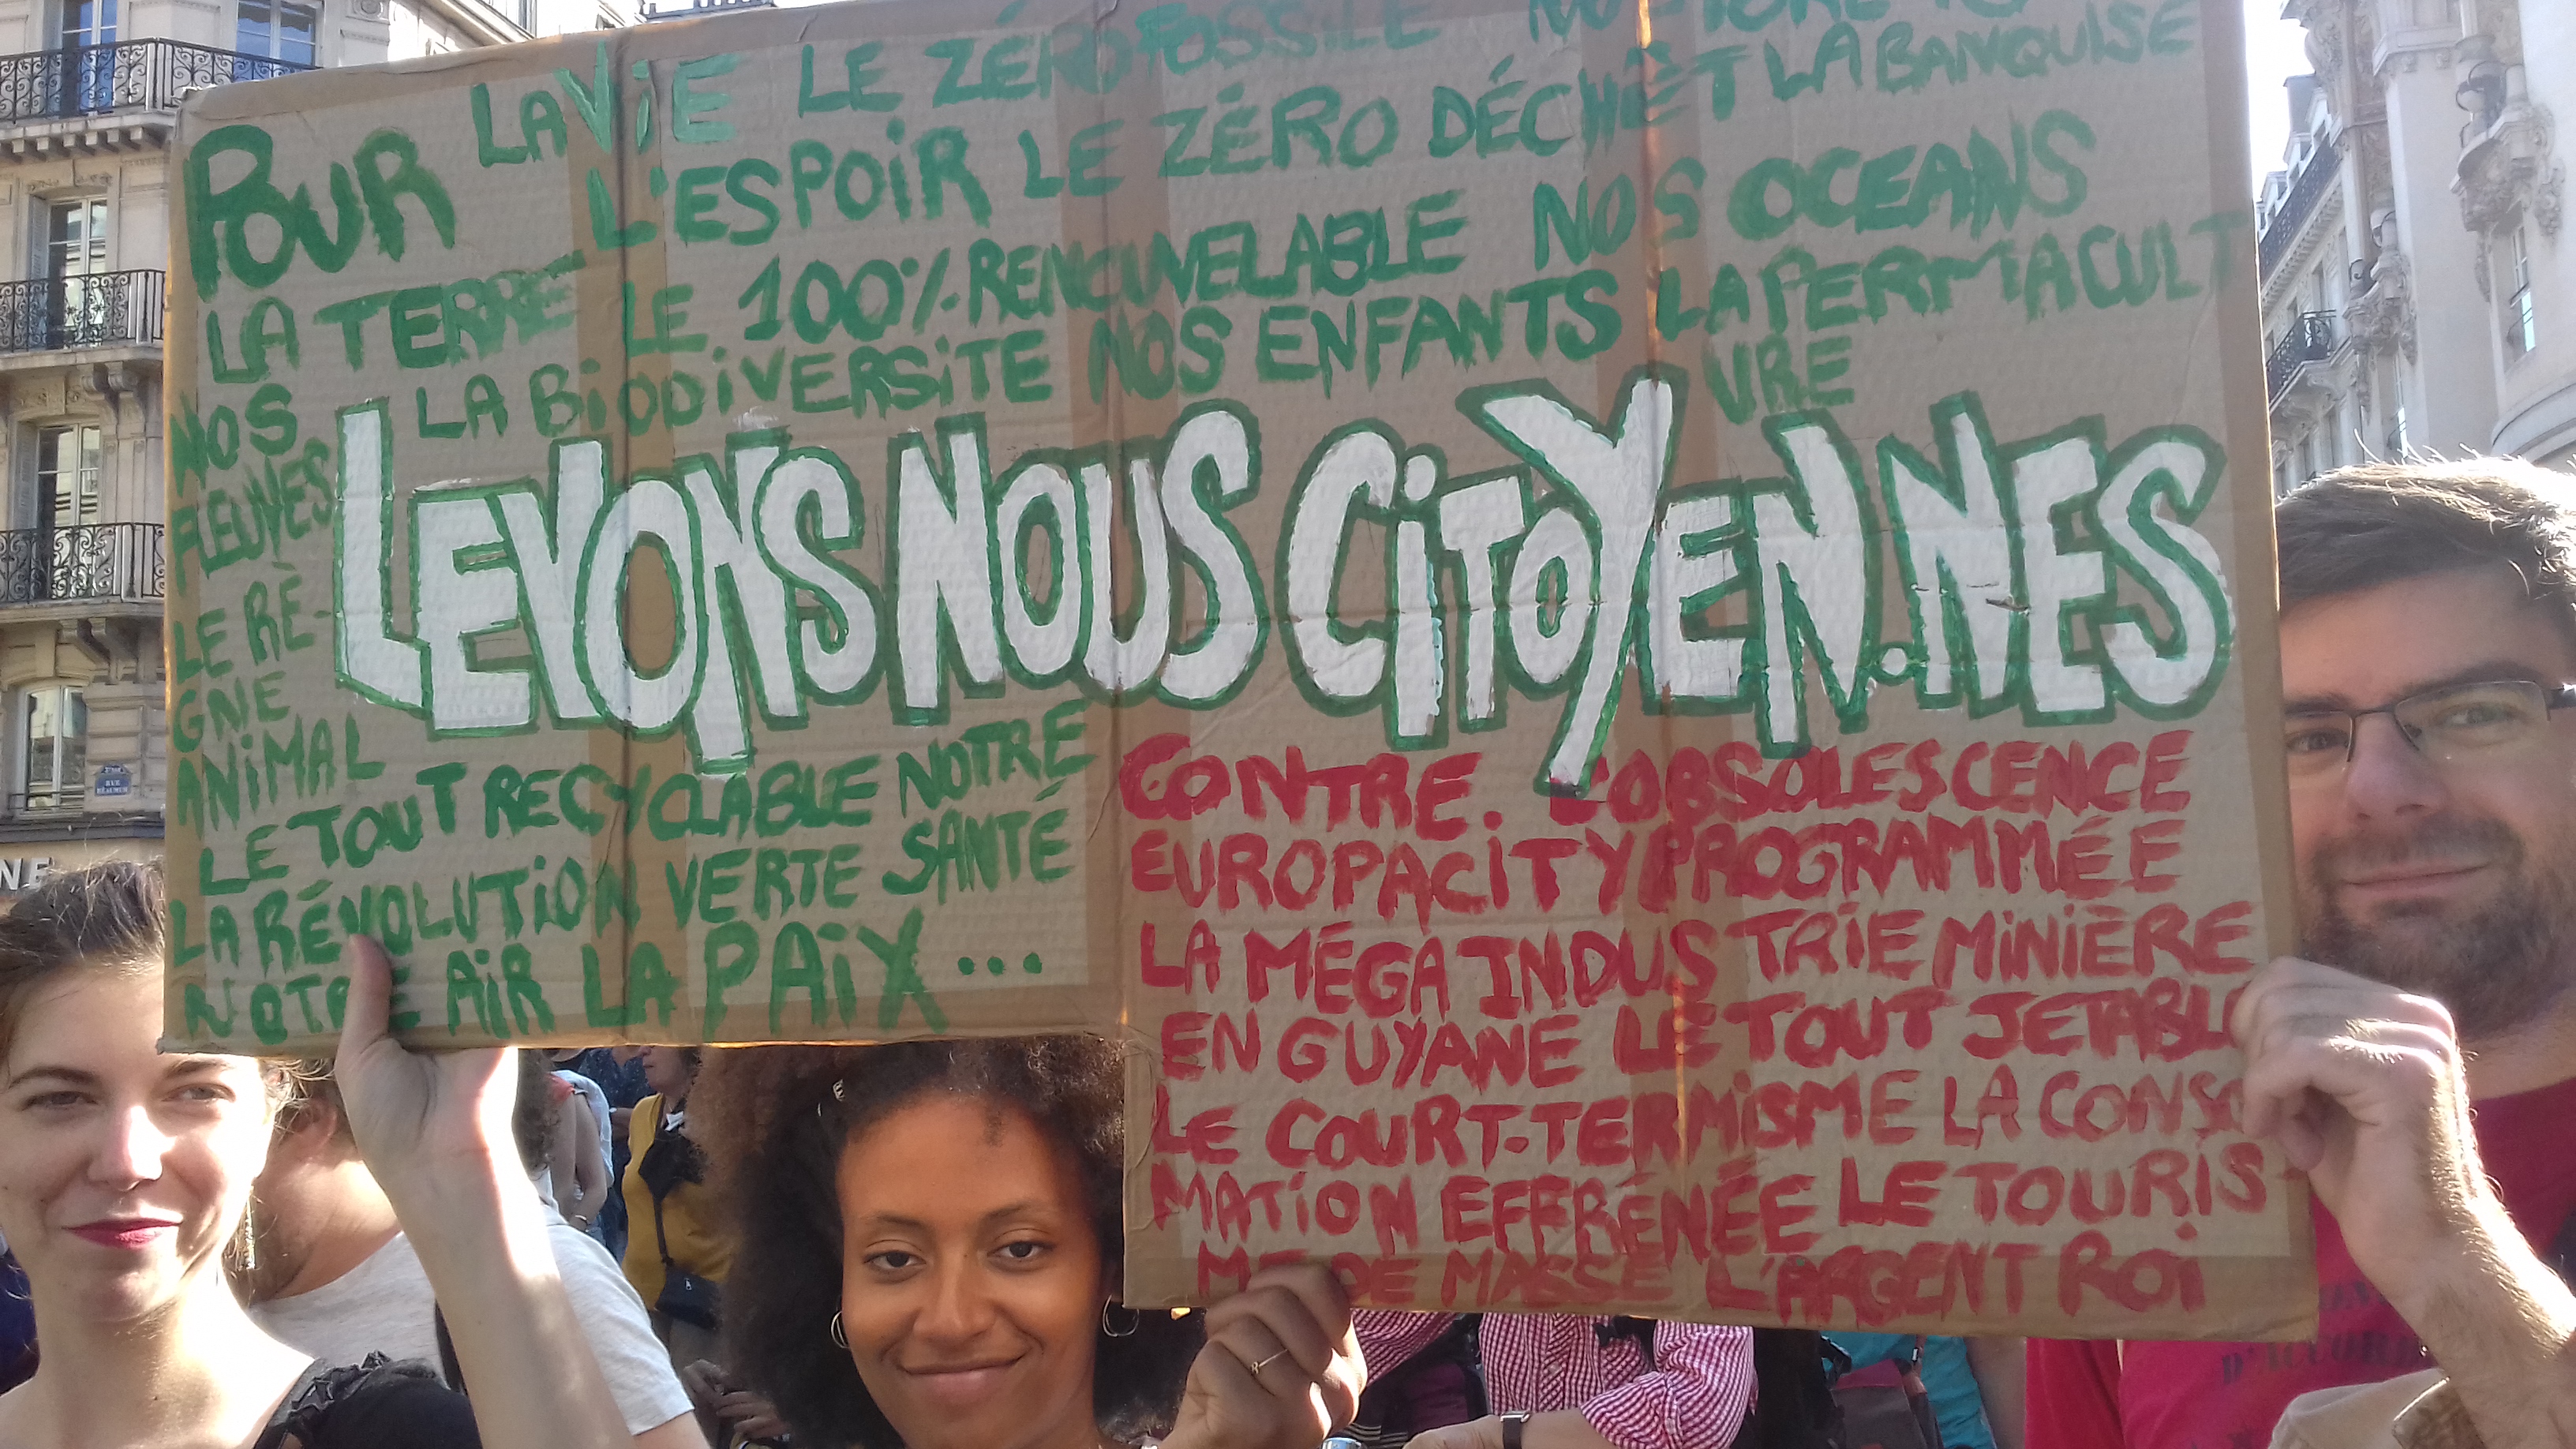 POUR LA VIE LE ZÉRO FOSSILE
L'ESPOIR LE ZÉRO DÉCHET LA BANQUISE
LA TERRE LE 100% RENOUVELABLE NOS OCEANS
LA BIODIVERSITE NOS ENFANTS LA PERMACULT
URE
NOS
FLEUVES
LE RÈ-
GNE
ANIMAL
LEVONS NOUS CITOYEN.NES
LE TOUT RECYCLABLE NOTRE
LA RÉVOLUTION VERTE SANTÉ
NOTRE AIR LA PAIX...
CONTRE. L'OBSOLESCENCE
EUROPACITY PROGRAMMÉE
LA MÉGA INDUSTRIE MINIÈRE
EN GUYANE LE TOUT JETABLE
LE COURT-TERMISME LA CONSO
MATION EFFRÉNÉE LE TOURIS
ME DE MASSE L'ARGENT ROI
RUE
NE